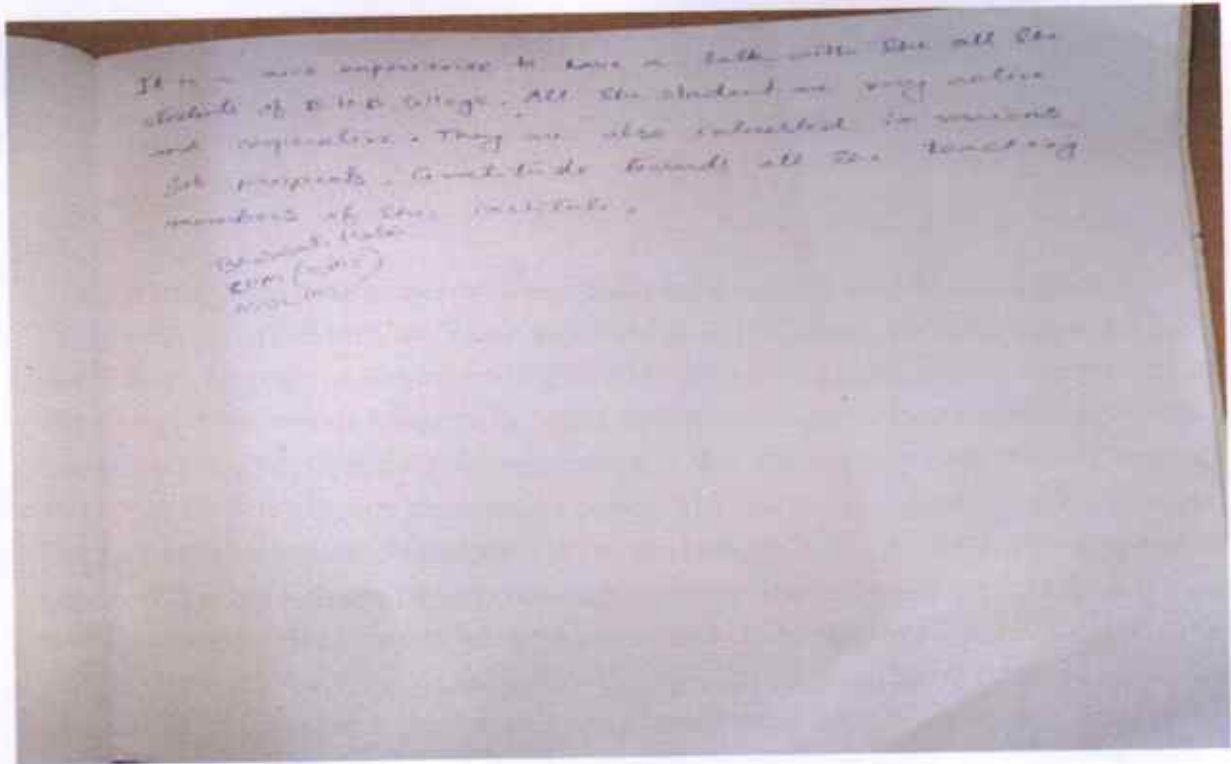 It is a nice experience to have a talk with the all the
students of D.H.D College. All the student are very active
and cooperative. They are also interested in various
Job prospects. Gratitude towards all the teaching
members of this institute.